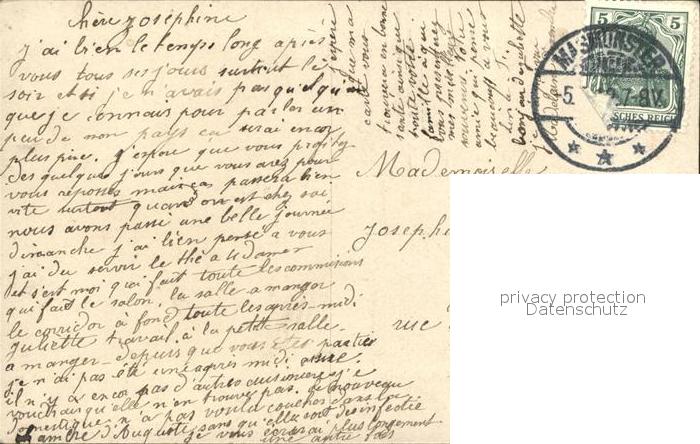 Chère Joséphine
j'ai bien le temps long après
vous tous ses jours surtout le
soir et si je n'avais pas quelqu'un
que je connais pour parler un
peu de mon pays ca serai encor
plus pire. J'espou que vous profitez
des quelques jours que vous avez pour
vous reposses mais ças passera bien
vite surtout quand on est chez soi
nous avons passé une belle journée
dimanche j'ai bien pensé a vous
j'ai du servir le thé a 12 damer
et s'est moi qui fait toute les commisions
qui fait le salon, la salle a manger
le corridor à fond toute les après-midi
Juliette travail à la petite salle
a manger depuis que vous êtes partier
je n'ai pas été une après midi
il n'y a encor pas d'autres cuisinieres je
voudrais qu'elle n'en trouvez pas, le nouveau
domestique n'a pas voulu coucher dans la
chambre d'Auguste sans qu'elle soit desinfectié
je vous écrirai plus longement
une autre fois
j'espere
que ma
carte vous
trouvera en bonne
santé ainsi que
toute votre
famille à qui
vous
mes
votre
amie qui pense
beaucoup a vous
bonjour de juliette
Mademoiselle
Joseph
rue
5
5
MASMÜNSTER
5. 7-8V.
SCHES REICH
privacy protection
Datenschutz